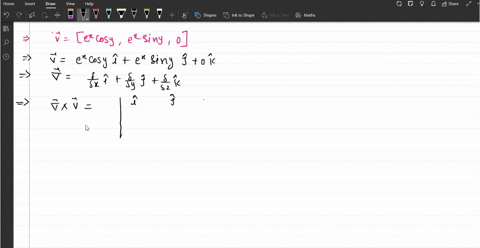 File Home Insert Draw View Help
Shapes Ink to Shape Ink to Text Maths
⇒ v⃗ = [eˣ cosy, eˣ siny, 0]
⇒ v⃗ = eˣ cosy î + eˣ siny ĵ + 0 k̂
⇒ ∇⃗ = δ/δx î + δ/δy ĵ + δ/δz k̂
⇒ ∇⃗ × v⃗ = | î ĵ